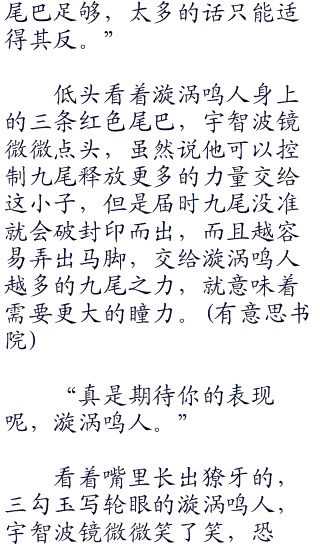 尾巴足够，太多的话只能适
得其反。”
低头看着漩涡鸣人身上
的三条红色尾巴，宇智波镜
微微点头，虽然说他可以控
制九尾释放更多的力量交给
这小子，但是届时九尾没准
就会破封印而出，而且越容
易弄出马脚，交给漩涡鸣人
越多的九尾之力，就意味着
需要更大的瞳力。(有意思书
院)
“真是期待你的表现
呢，漩涡鸣人。”
看着嘴里长出獠牙的，
三勾玉写轮眼的漩涡鸣人，
宇智波镜微微笑了笑，恐